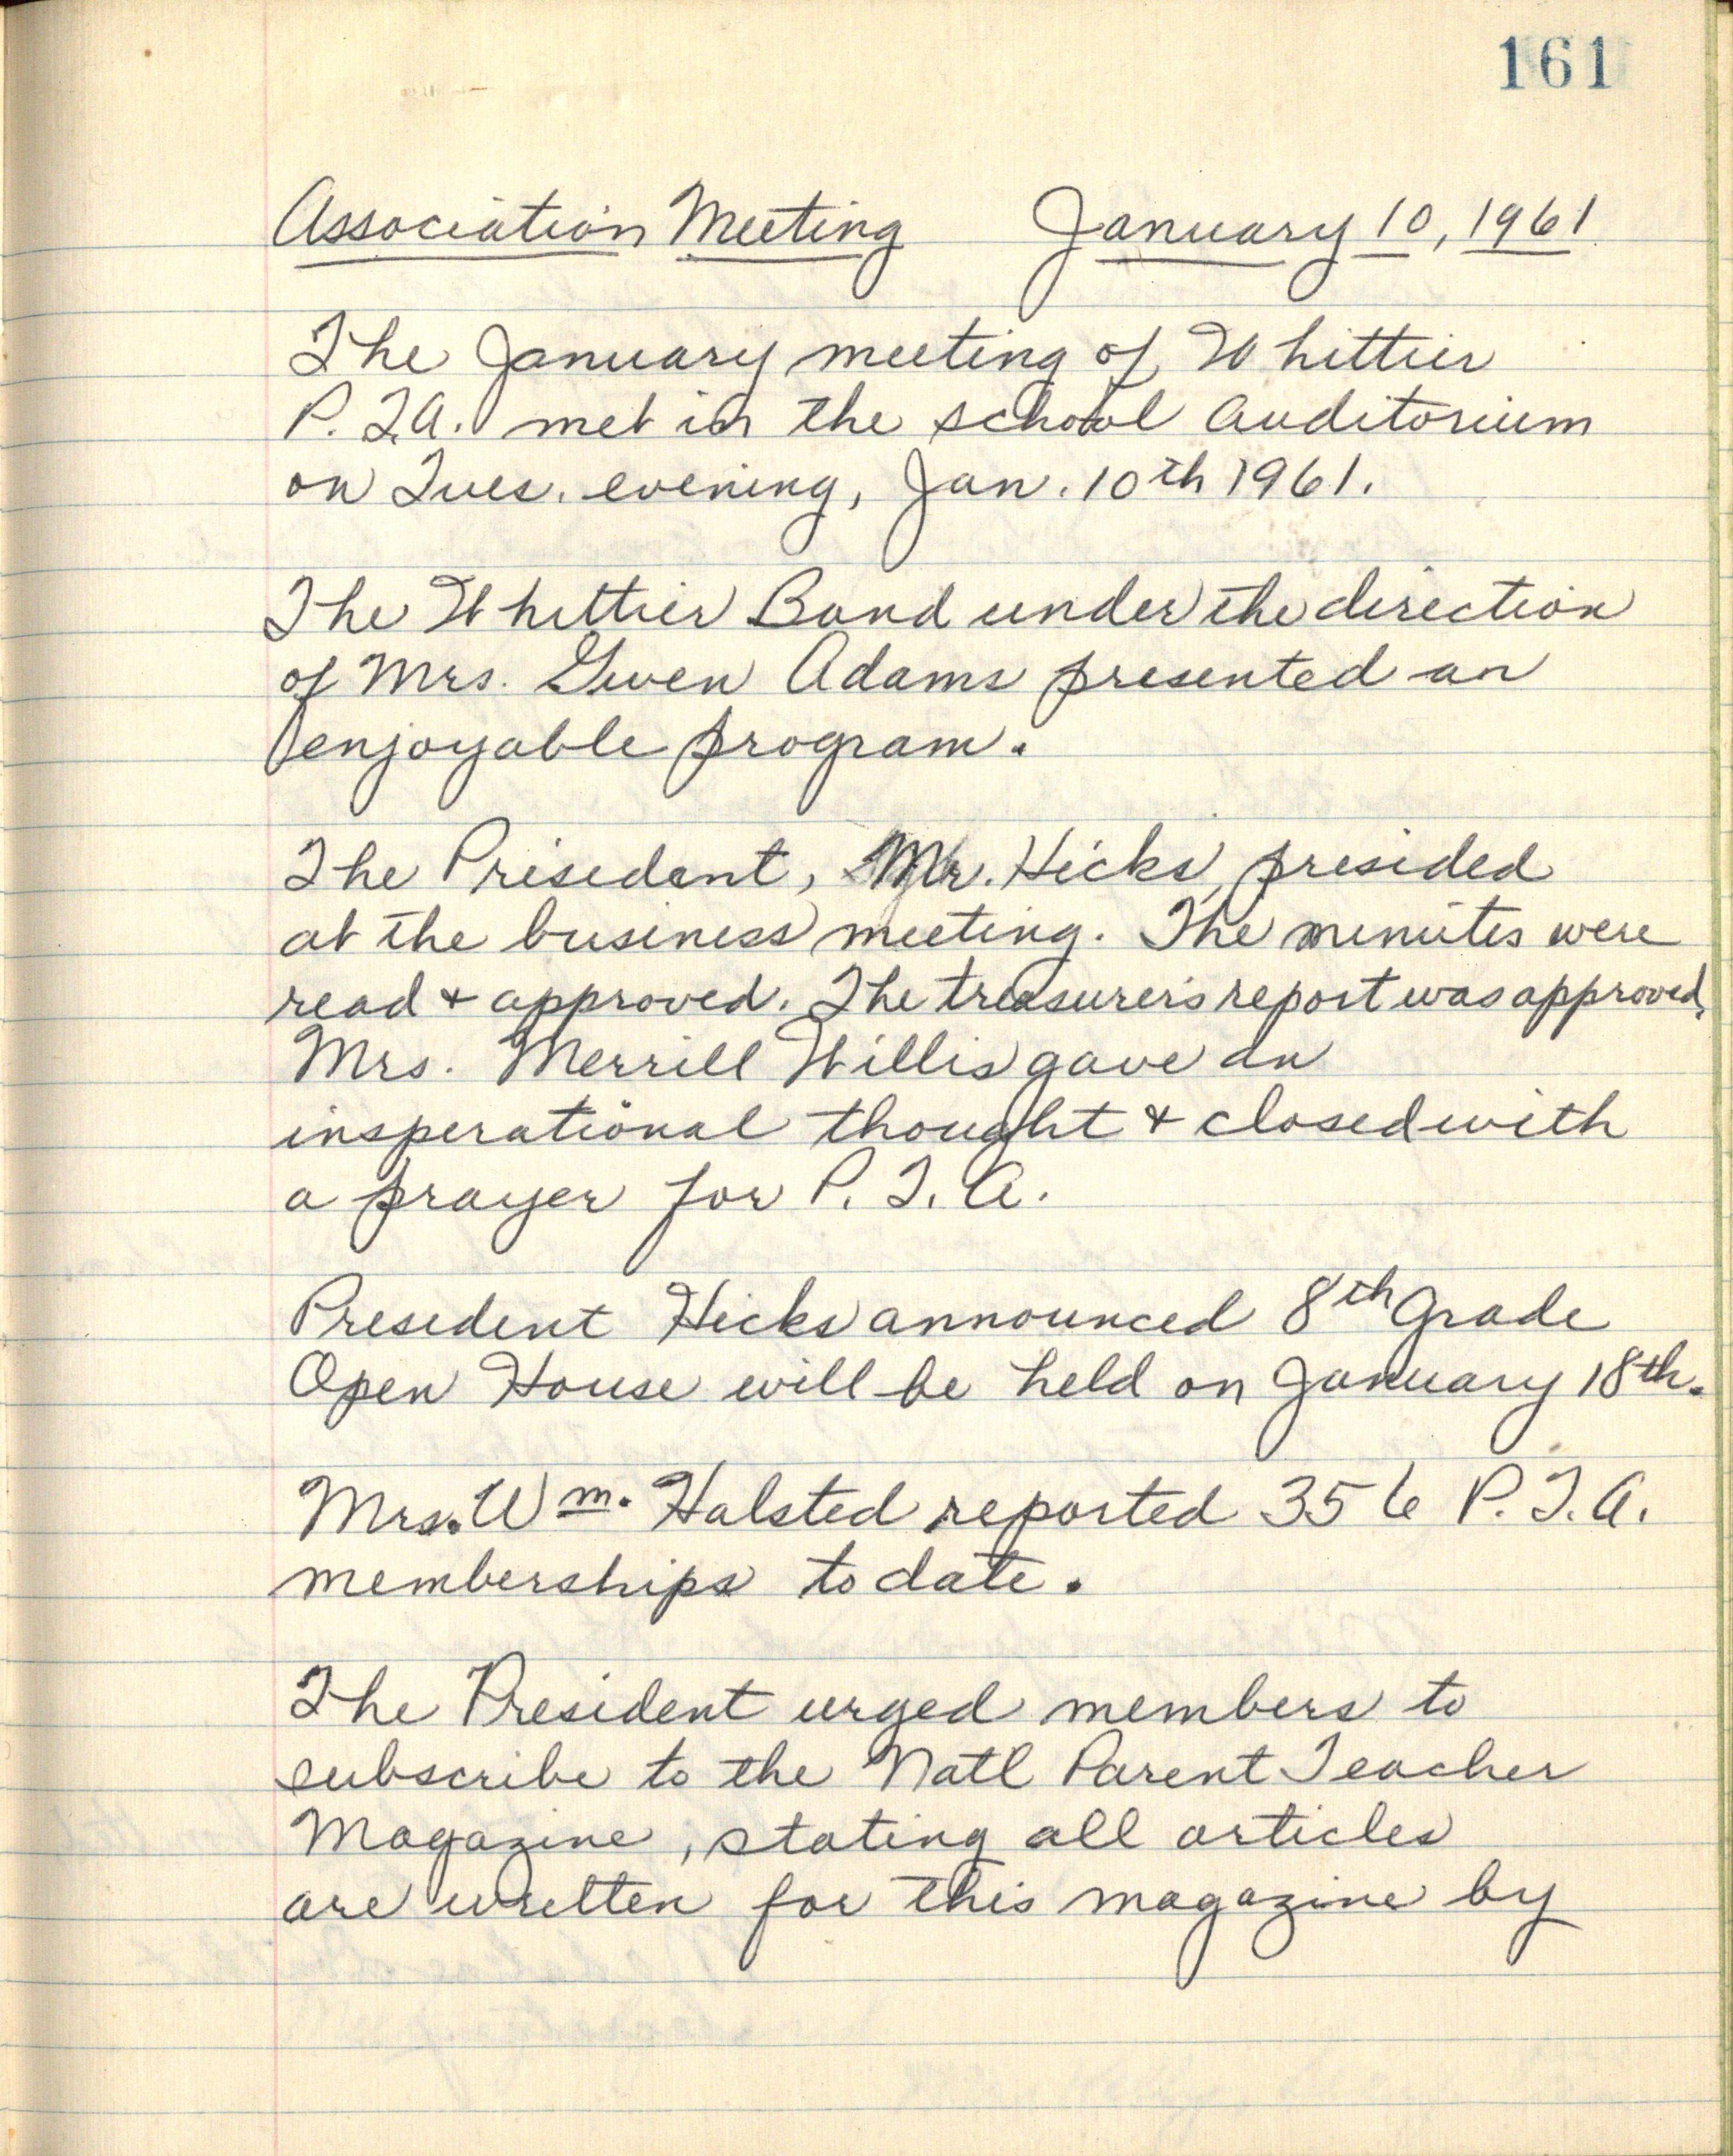 161
Association Meeting January 10, 1961
The January meeting of Whittier
P.T.A. met in the school auditorium
on Tues. evening, Jan. 10th 1961.
The Whittier Band under the direction
of Mrs. Gwen Adams presented an
enjoyable program.
The President, Mr. Hicks, presided
at the business meeting. The minutes were
read & approved. The treasurer's report was approved.
Mrs. Merrill Willis gave an
insperational thought & closed with
a prayer for P. T. A.
President Hicks announced 8th Grade
Open House will be held on January 18th.
Mrs. Wm. Halsted reported 356 P. T. A.
memberships to date.
The President urged members to
subscribe to the Natl Parent Teacher
Magazine, stating all articles
are written for this magazine by